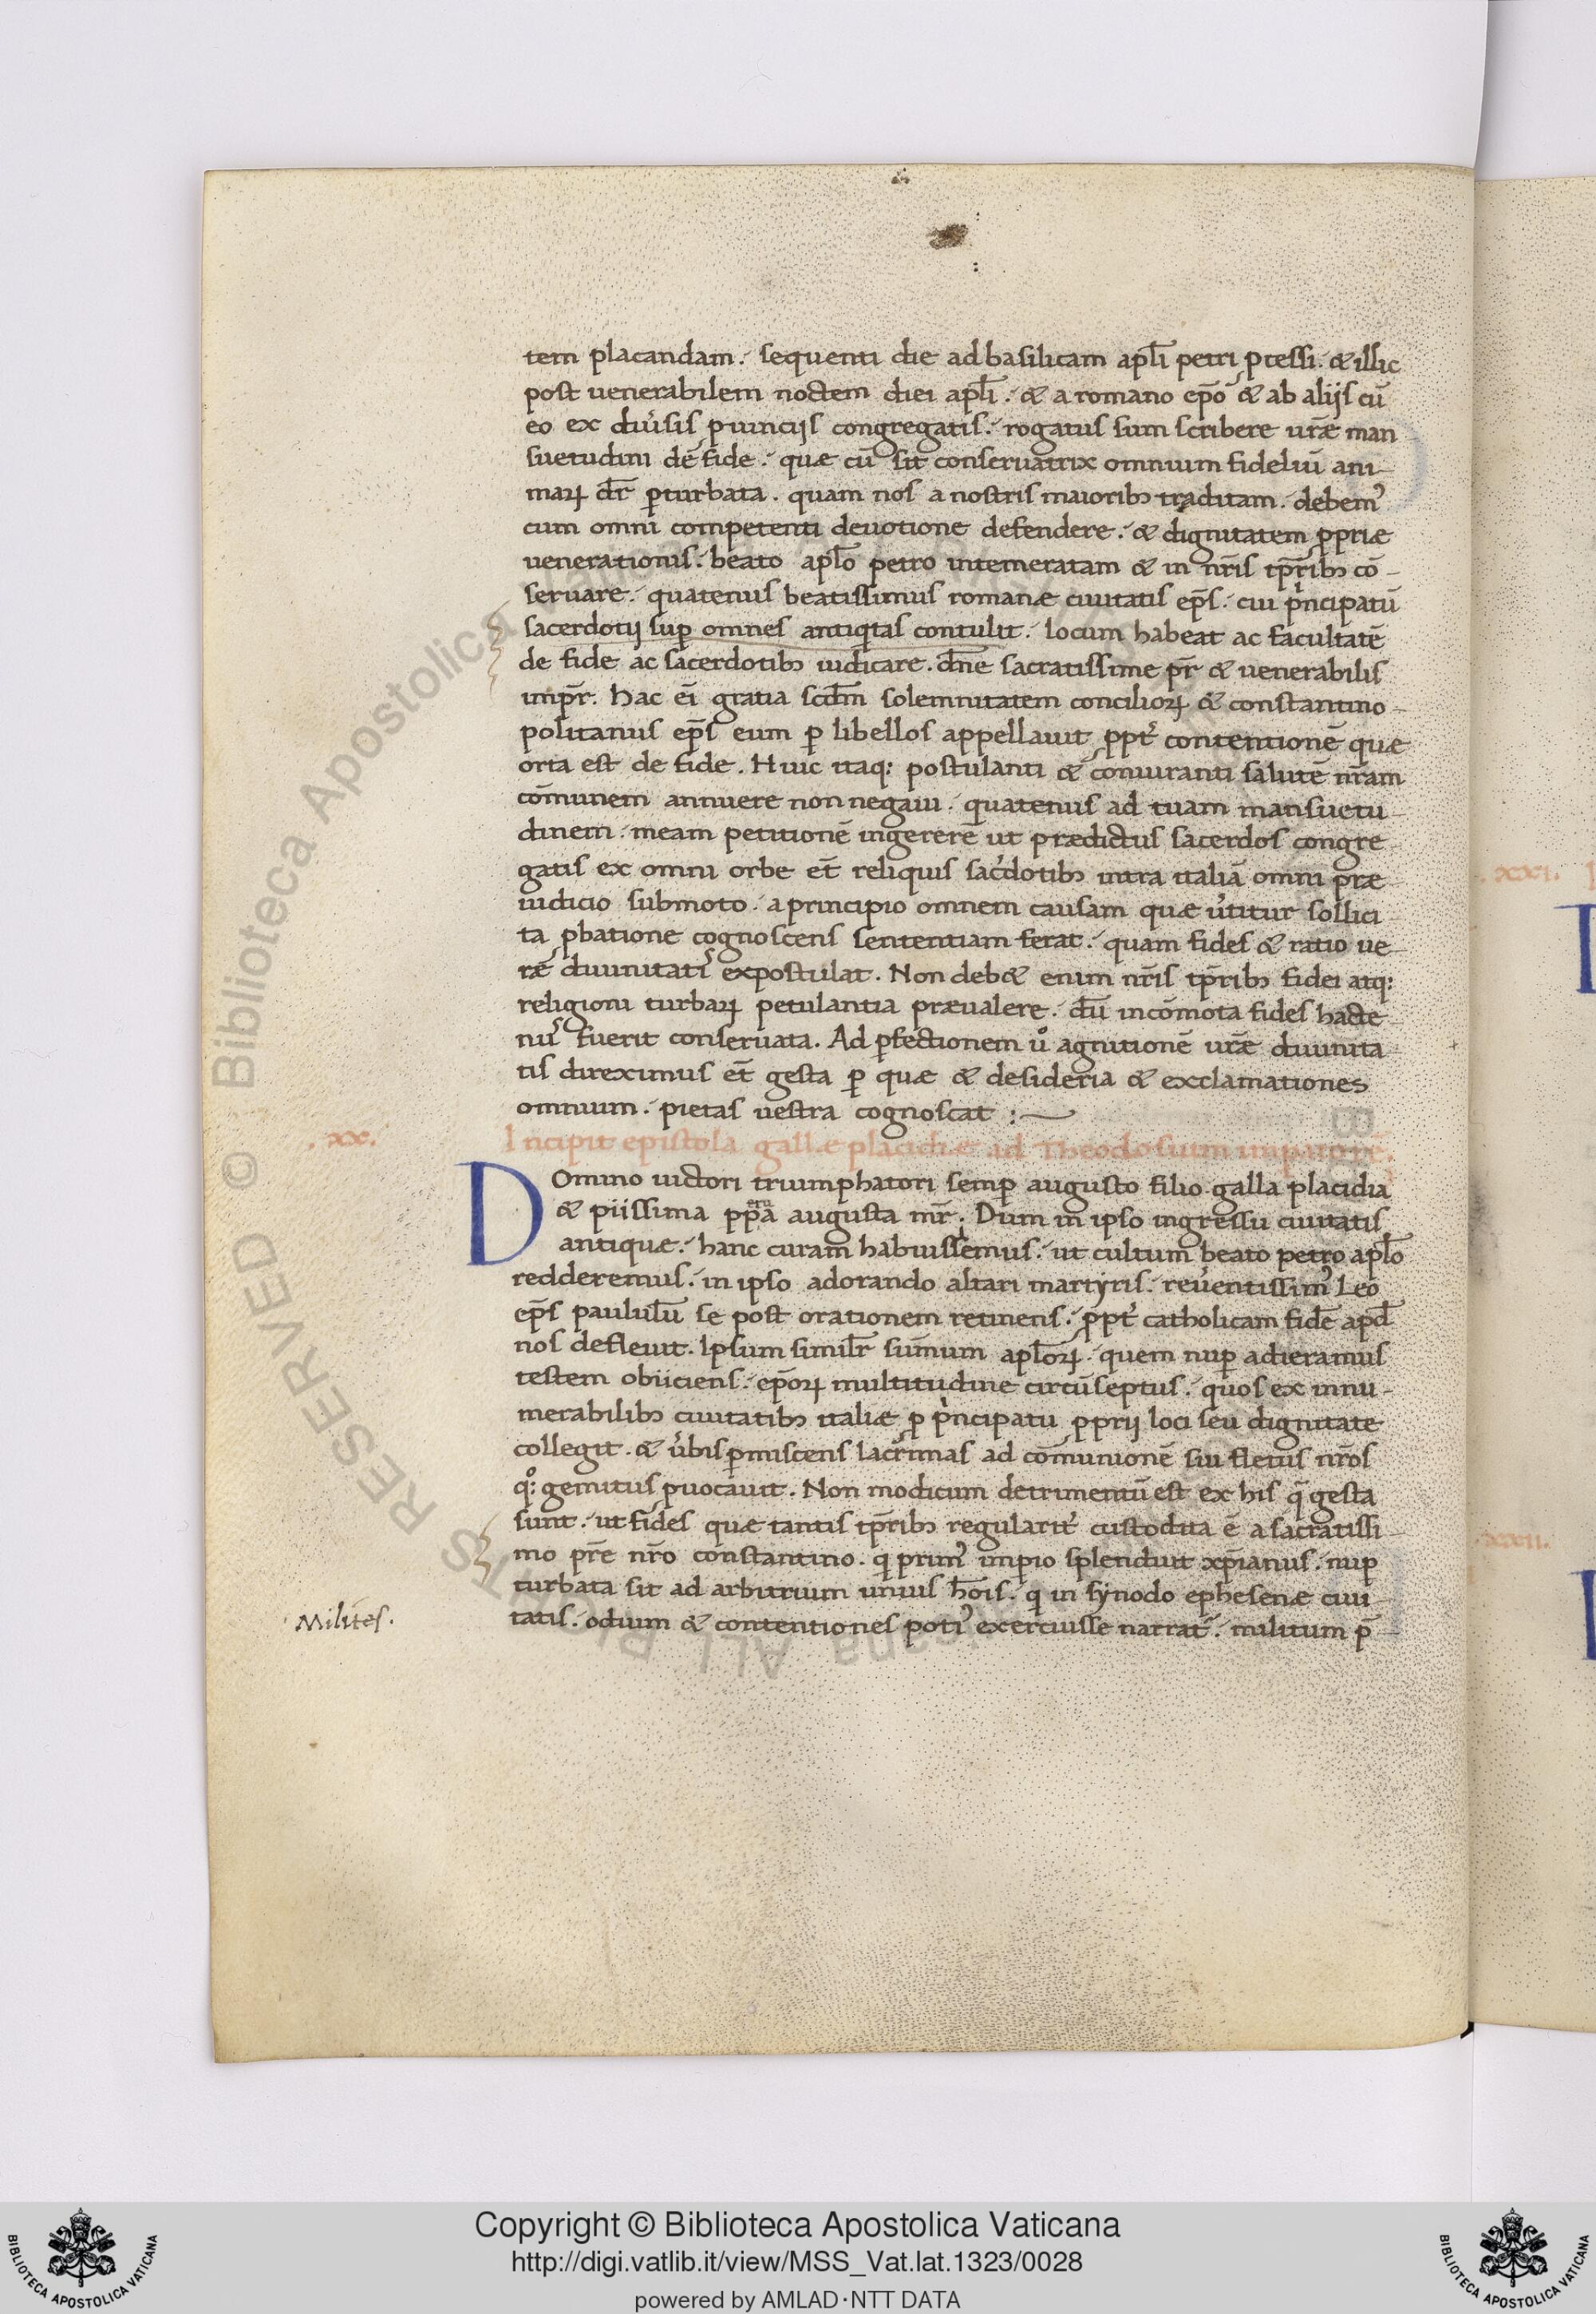 tem placandam. sequenti die ad basilicam apl̄i petri p̲cessi. & illic
post uenerabilem noctem diei apl̄i. & a romano ep̄o & ab aliis cū
eo ex diu̓sis p̲uinciis congregatis. rogatus sum scribere ur̄æ man
suetudini de fide. quæ cū sit conseruatrix omnium fideliū ani-
marꝝ dr̄ ꝑturbata. quam nos a nostris maioribꝫ traditam. debemꝰ
cum omni competenti deuotione defendere. & dignitatem ꝓpriæ
uenerationis. beato apl̄o petro intemeratam & in nr̄is tp̄ribꝫ cō-
seruare. quatenus beatissimus romanæ ciuitatis ep̄s. cui pⁱncipatū
sacerdotij suꝑ omnes antiqⁱtas contulit. locum habeat ac facultatē
de fide ac sacerdotibꝫ iudicare. dn̄e sacratissime pr̄ & uenerabilis
impr̄. hac ei gratia scdm̄ solemnitatem conciliorꝝ & constantino-
politanus ep̄s eum ꝑ libellos appellauit ꝓpt̓ contentionē quæ
orta est de fide. Huic itaq: postulanti & coniuranti salutē nr̄am
cōmunem annuere non negaui. quatenus ad tuam mansuetu-
dinem. meam petitionē ingererē ut prædictus sacerdos congre-
gatis ex omni orbe et̄ reliquis sac̓dotibꝫ intra italiā omni præ-
iudicio submoto. a principio omnem causam quæ u̓titur sollici-
ta ꝓbatione cognoscens sententiam ferat. quam fides & ratio ue-
ræ diuinitatis expostulat. Non deb& enim nr̄is tp̄ribꝫ fidei atq:
religioni turbarꝝ petulantia præualere. dū incōmota fides hacte-
nꝰ fuerit conseruata. Ad ꝑfectionem u° agnitionē ur̄æ diuinita-
tis direximus et̄ gesta ꝑ quæ & desideria & exclamationes
omnium. pietas uestra cognoscat :~
.xx. Incipit epistola gallæ placidiæ ad Theodosium imꝑatorē.
DOmino uictori triumphatori semꝑ augusto filio galla placidia
& piissima pp̄a augusta mr̄. Dum in ipso ingressu ciuitatis
antiquæ. hanc curam habuissemus. ut cultum beato petro apl̄o
redderemus. in ipso adorando altari martyris. reu̓entissimꝰ Leo
ep̄s paululū se post orationem retinens. ꝓpt̓ catholicam fidē apd̄
nos defleuit. Ipsum simil̄r sūmum apl̄orꝝ. quem nuꝑ adieramus
testem obiiciens. ep̄orꝝ multitudine circūseptus. quos ex innu-
merabilibꝫ ciuitatibꝫ italiæ ꝓ pⁱncipatu ꝓprij loci seu dignitate
collegit. & u̓bis ꝑmiscens lac̓rimas ad cōmunionē sui fletus nr̄os
q°: gemitus ꝓuocauit. Non modicum detrimentū est ex his q̄ gesta
sunt. ut fides quæ tantis tp̄ribꝫ regularit̓ custodita ē a sacratissi-
mo pr̄e nr̄o constantino. qⁱ primꝰ imꝑio splenduit xp̄ianus. nuꝑ
turbata sit ad arbitrium unius ho̅is. qⁱ in synodo ephesenæ ciui-
Milites.
tatis. odium & contentiones potiꝰ exercuisse narrat̓. militum p̄-
Copyright © Biblioteca Apostolica Vaticana
http://digi.vatlib.it/view/MSS_Vat.lat.1323/0028
powered by AMLAD·NTT DATA